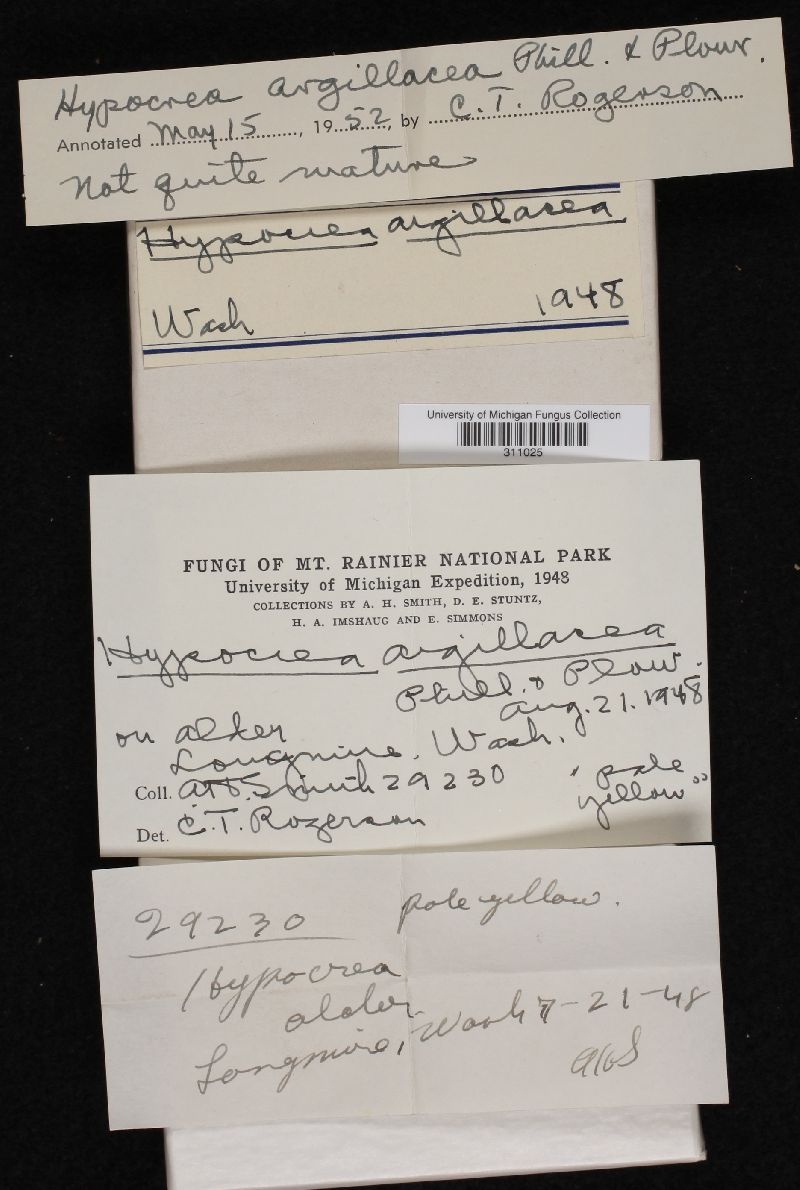 Hypocrea argillacea Phill. & Plowr.
Annotated May 15, 1952, by C. T. Rogerson
Not quite mature
Hypocrea argillacea
Wash 1948
University of Michigan Fungus Collection
311025
FUNGI OF MT. RAINIER NATIONAL PARK
University of Michigan Expedition, 1948
COLLECTIONS BY A. H. SMITH, D. E. STUNTZ,
H. A. IMSHAUG AND E. SIMMONS
Hypocrea argillacea
Phill. & Plow.
Aug. 21. 1948
on alder
Longmire, Wash.
Coll. AHSmith 29230 "pale
yellow"
Det. C. T. Rogerson
29230 pale yellow.
Hypocrea
alder
Longmire, Wash 7-21-48
AHS